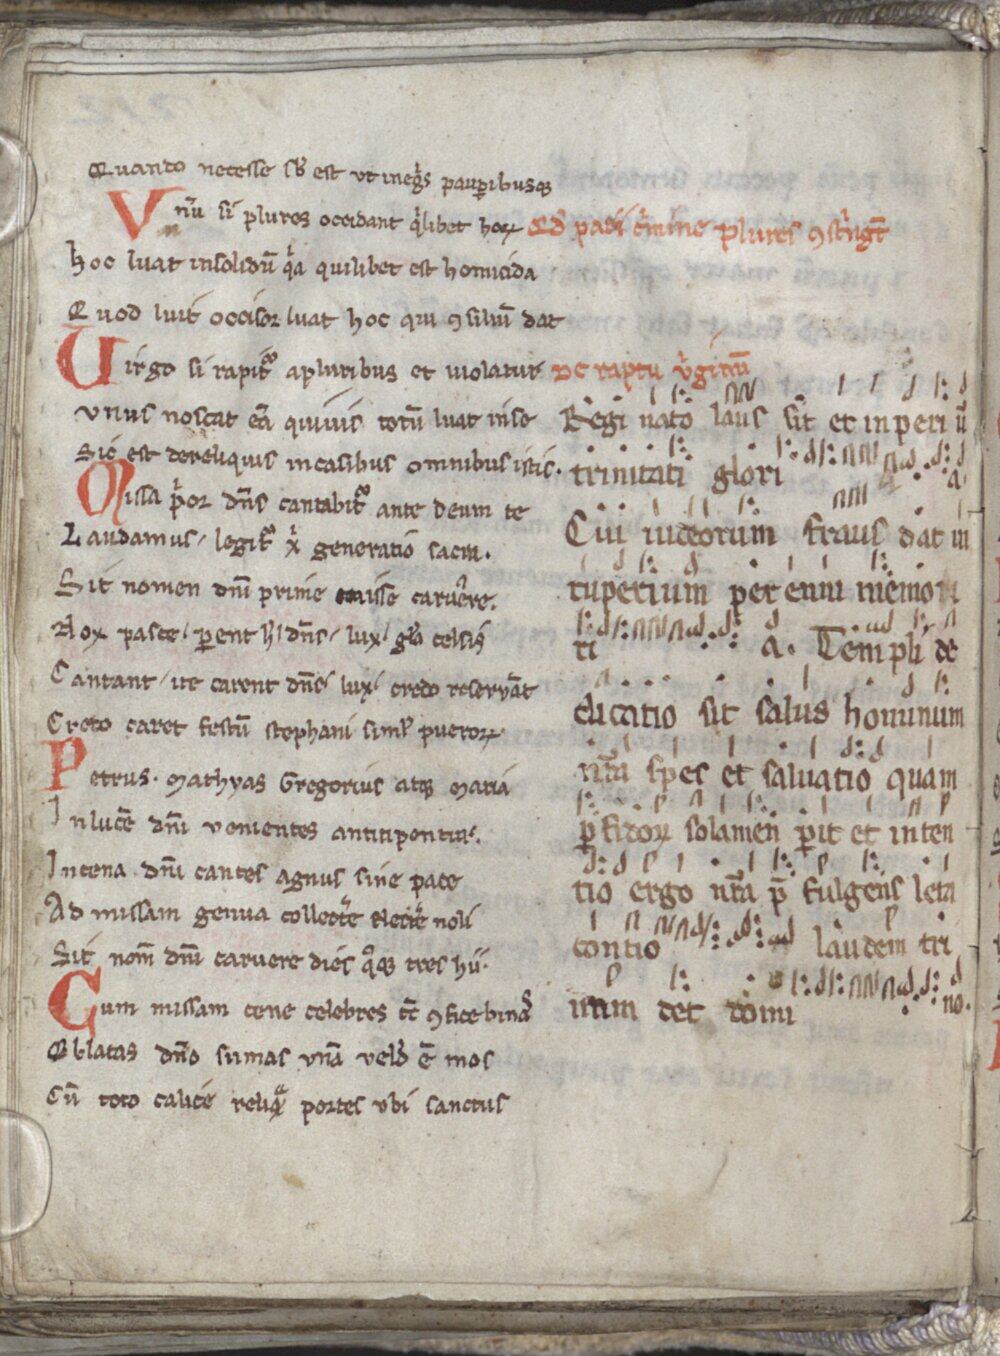 Quando necesse sb' est ut inegͦs pauꝑibusqȝ
Vnū si plures occidant q'libet hoꝝ Qđ pari c'mine plures ꝯst'ngt̄
hoc luat insolidū q'a quilibet est homicida
Quod luit occisor luat hoc qui ꝯsiliū dat
Uirgo si rapit' apluribus et uiolatur De raptu v'ginū
vnus noscat eā quiuis totū luat inse
Sic est dereliquis incasibus omnibus istis.
Missa p'or dn̄s cantabit' ante deum te
Laudamus, legit' xp̄i generatio sacri.
Sit nomen dn̄i prime misse caruere.
Nox pasce, ꝑent h' dn̄s, lux, glā celsis
Cantant, ite carent dn̄s, lux, credo reseruāt
Creto caret festū stephani simł pueroꝝ
Petrus. Mathyas Gregorius atqȝ maria
Inlucē dn̄i venientes
Incena dn̄i cantes agnus sine pace
Ad missam genua noli
Sit nom̄ dn̄i caruere dies q'qȝ tres hii.
Cum missam cene celebres ꝯficebinas
Oblatas dn̄o sumas vnā ē mos
Cū toto calice reliq'ā portes vbi sanctus
Regi nato laus sit et inperiū
trinitati glori a.
Cui iudeorum fraus dat in
tuperium per enni memori
ti a. Templi de
dicatio sit salus hominum
nr̄a spes et saluatio quam
ꝑfidoꝝ solamen ꝑit et inten
tio ergo nr̄a p̄ fulgens leta
contio laudem tri
num det domi no.